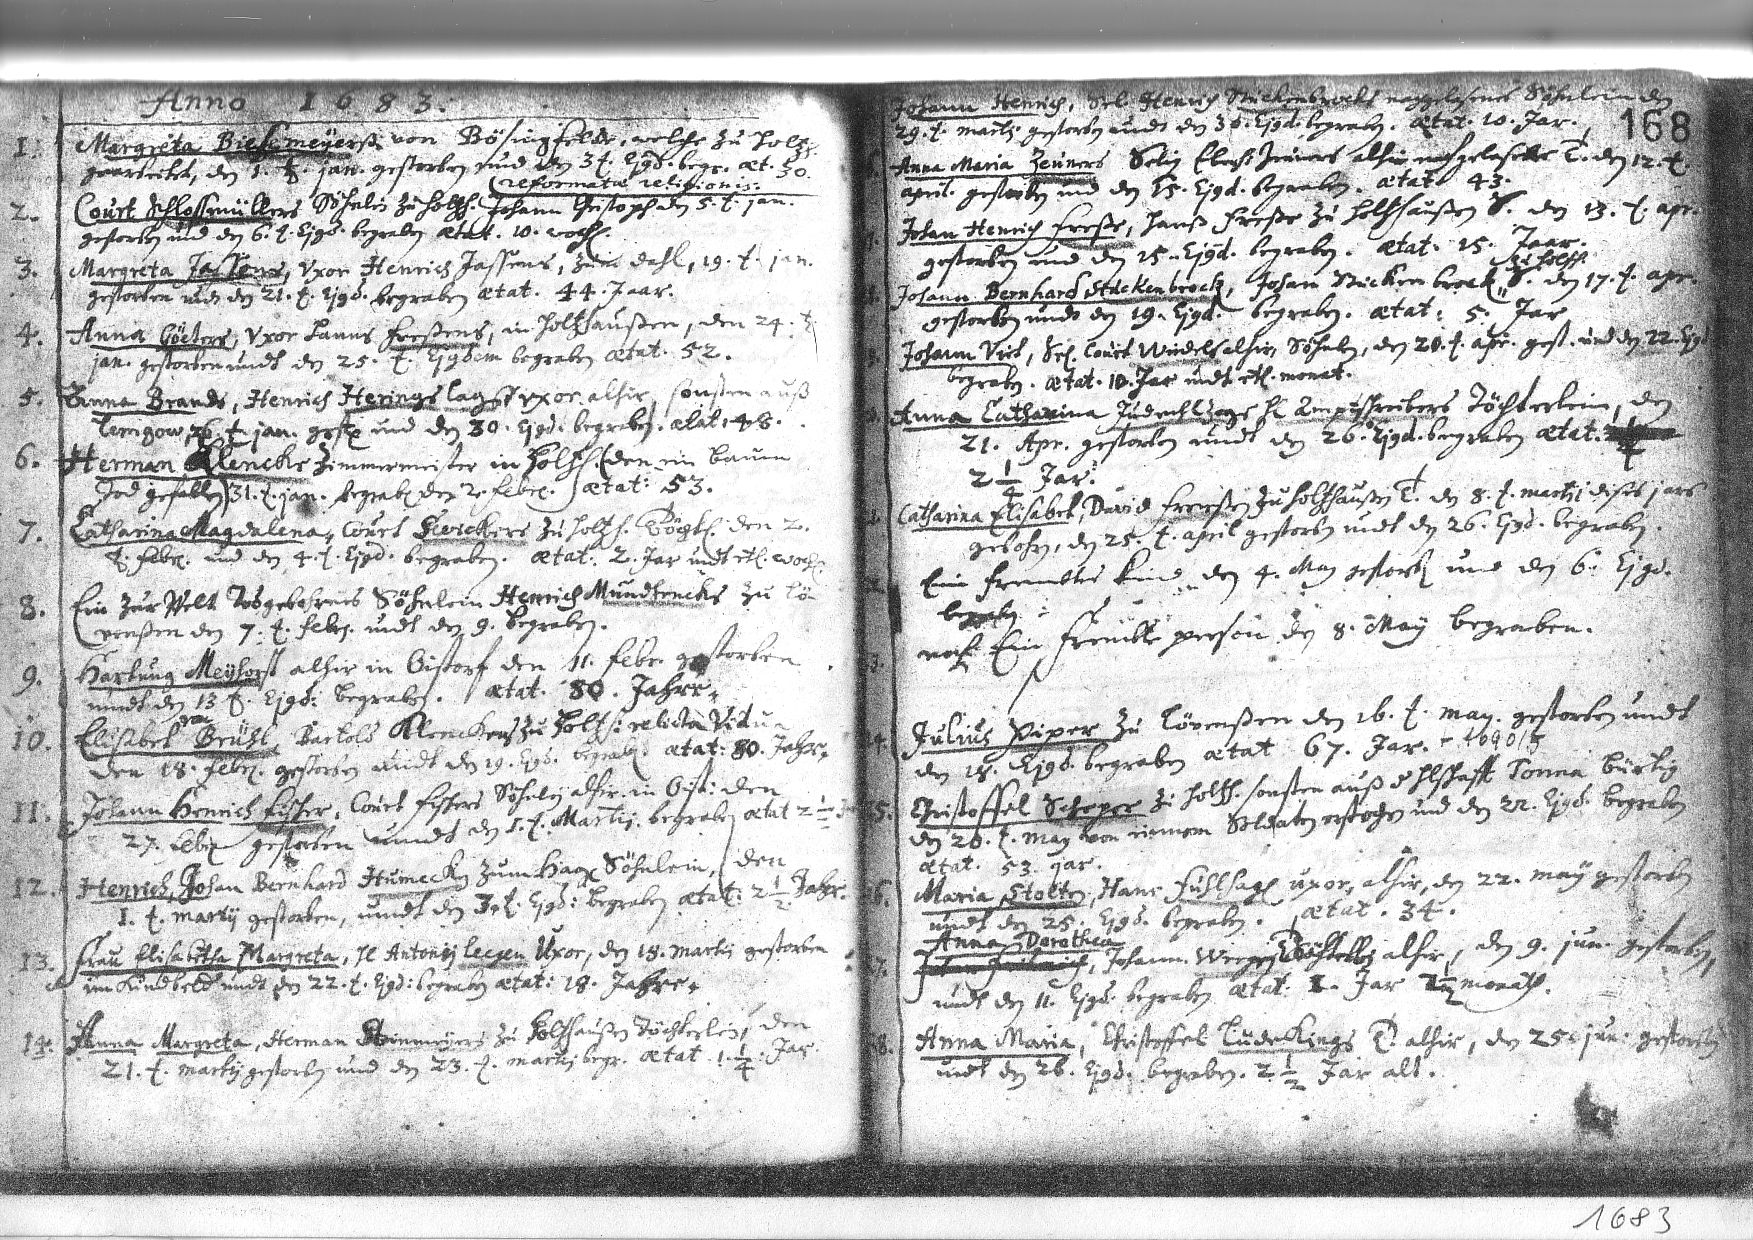 Anno 1683.
1. Margreta Biesemeyerß von Bösingfelde, welche zu Holtzh.
gearbeitet, den 1. t. jan. gestorben und den 3 t. Ejgd. begr. æt. 30.
(reformatæ religionis.
2. Court Schlossmüllers Söhnlein zu Holtzh. Johann Christoph den 5. t. jan.
gestorben und den 6. t. Ejgd. begraben ætat. 10. woch.
3. Margreta Jassens, Uxor Henrich Jassens, zum dahl, 19. t. jan.
gestorben undt den 21. t. Ejgd. begraben ætat. 44. Jaar.
4. Anna Cöeters, Uxor Hanns Freßens, in Holtzhaußen, den 24. t.
jan. gestorben undt den 25. t. Ejgdem begraben ætat. 52.
5. Anna Brands, Henrich Herings uxor alhir, sonsten auß
Lemgow, 26. t. jan. gest. und den 30. Ejgd. begraben. ætat. 48.
6. Herman Klencke Zimmermeister in Holtzh. (den ein Baum
Tod gefallen) 31. t. jan. begrab. den 2. febr. ætat: 53.
7. Catharina Magdalena, Court Frickers zu Holtzh. Vögtl. den 2.
t. febr. und den 4. t. Ejgd. begraben. ætat. 2. Jar undt etl. woch.
8. Ein zur Welt Todgebohrnes Söhnlein Henrich Mundhencks zu Lö-
venßen den 7. t. febr. undt den 9. begraben.
9. Hartung Meyhorst alhir in Oistorf den 11. febr. gestorben
undt den 13 t. Ejgd: begraben. ætat. 80. Jahre.
10. Elisabet Brühl Bartols Klenckens zu Holtzh: relicta Vidua
den 18. febr. gestorben undt den 19. Ejgd. begrab. ætat: 80. Jahr.
11. Johann Henrich Fischer, Court Fischers Söhnlein alhir in Oist: den
27. febr. gestorben undt den 1. t. Martij. begraben ætat 2 1/2
12. Henrich, Johan Bernhard Humecke zum Hagen Söhnlein, den
1. t. martij gestorben, undt den 3. t. Ejgd: begraben ætat: 2 1/2 Jahr.
13. Frau Elisabetha Margreta, H. Antonij Leegen Uxor, den 18. martij gestorben
im Kindbeth undt den 22. t. Ejgd: begraben ætat: 18. Jahre.
14. Anna Margreta, Herman Steinmeyers zu Holtzhaußen Töchterlein, den
21. t. martij gestorben und den 23. t. martij begr. ætat. 1. 1/4. Jar
168
Johann Henrich, Sel. Henrich Stuckenbrocks nachgelasenes Söhnlein den
29. t. martij gestorben undt den 30. Ejgd. begraben. ætat. 10. Jar.
Anna Maria Zeuners Selig nachgelasene T. den 12. t.
april. gestorben und den 15. Ejgd. begraben. ætat. 43.
Johan Henrich Freße, Hanß Freße zu Holtzhaußen S. den 13. t. apr.
gestorben und den 15. Ejgd. begraben. ætat. 15. Jaar.
zu Holtzh.
Johann Bernhard Stuckenbrock, Johan Stuckenbrock S. den 17. t. apr.
gestorben undt den 19. Ejgd. begraben. ætat: 5. Jar
Johann Viet, Sel. Court Windels alhir Söhnlein, den 20. t. apr. gest. und den 22. Ejgd
begraben. ætat. 10. Jar undt etl. monat.
Anna Catharina H. Amptschreibers Töchterlein, den
21. Apr. gestorben undt den 26. Ejgd. begraben ætat.
2 1/4 Jar.
Catharina Elisabet, David Freeßen zu Holtzhaußen T. den 8. t. martij dises jars
gebohren, den 25. t. april gestorben undt den 26. Ejgd. begraben.
Ein frembtes kind den 4. May gestorb. und den 6. Ejgd.
begraben
noch Ein frembte person den 8. May begraben.
Julius Piper zu Lövenßen den 16. t. may. gestorben undt
den 18. Ejgd. begraben ætat 67. Jar.
15. Christoffel Scheper zu Holtzh. sonsten auß Tonna bürtig
den 20. t. may von einnem Soldaten erstochen und den 22. Ejgd. begraben
ætat. 53. jar.
16. Maria Stolten, Hans uxor, alhir, den 22. may gestorben
undt den 25. Ejgd. begraben. ætat. 34.
Anna Dorothea
17. Johann Töchterlein alhir, den 9. jun. gestorben,
undt den 11. Ejgd. begraben ætat: 1. Jar monath.
18. Anna Maria, Christoffel Lüdekings T. alhir, den 25. jun: gestorben
undt den 26. Ejgd. begraben. 2 1/2 Jar alt.
1683